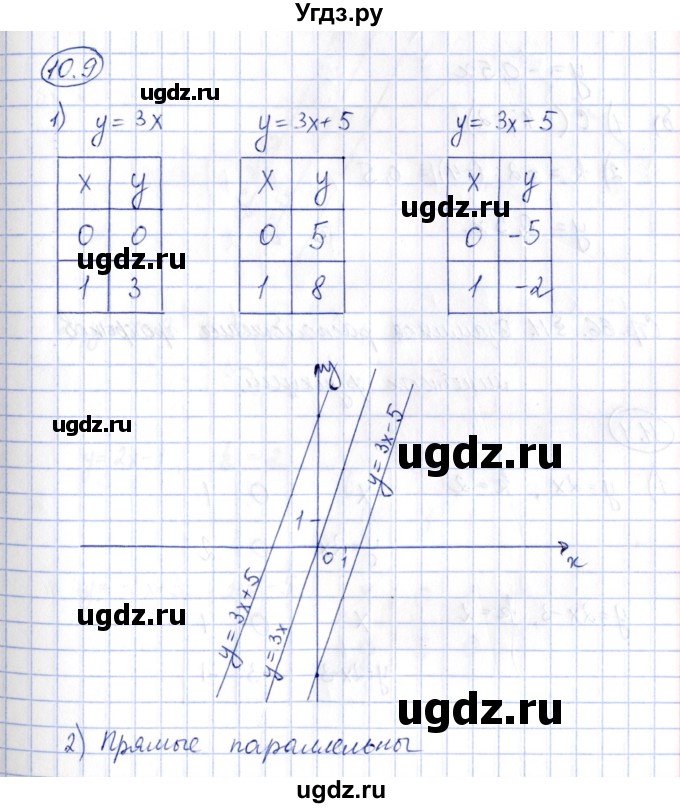 Угдз.ру
10.9
1) y = 3x y = 3x + 5 y = 3x - 5
x y x y x y
0 0 0 5 0 -5
1 3 1 8 1 -2
ugdz.ru
ugdz.ru
y
y = 3x - 5
ugdz.ru
ugdz.ru
1
0 1 x
y = 3x + 5
y = 3x
ugdz.ru
2) Прямые параллельны
ugdz.ru